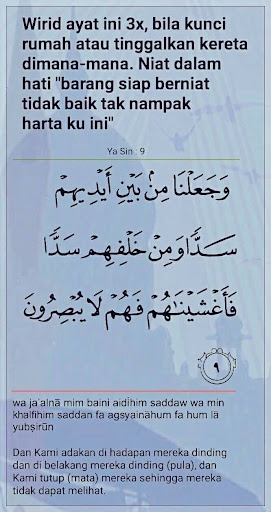 Wirid ayat ini 3x, bila kunci
rumah atau tinggalkan kereta
dimana-mana. Niat dalam
hati "barang siap berniat
tidak baik tak nampak
harta ku ini"
Ya Sin : 9
وَجَعَلْنَا مِنۢ بَيْنِ أَيْدِيهِمْ
سَدًّا وَمِنْ خَلْفِهِمْ سَدًّا
فَأَغْشَيْنَٰهُمْ فَهُمْ لَا يُبْصِرُونَ
٩
wa ja'alnā mim baini aidīhim saddaw wa min
khalfihim saddan fa agsyaināhum fa hum lā
yubṣirūn
Dan Kami adakan di hadapan mereka dinding
dan di belakang mereka dinding (pula), dan
Kami tutup (mata) mereka sehingga mereka
tidak dapat melihat.